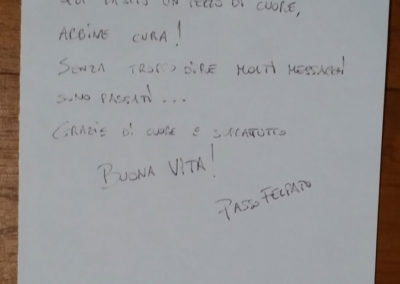 QUI LASCIO UN PEZZO DI CUORE,
ABBINE CURA!
SENZA TROPPO DIRE MOLTI MESSAGGI
SONO PASSATI...
GRAZIE DI CUORE E SOPRATTUTTO
BUONA VITA!
PASSO FELPATO